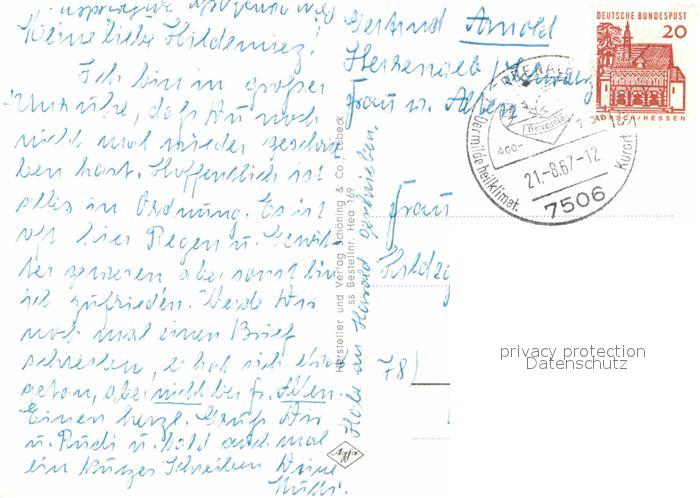 Meine liebe Hildemiez!
Ich bin in großer
Unruhe, daß Du noch
nicht mal wieder geschrie-
ben hast. Hoffentlich ist
alles in Ordnung. Es ist
oft hier Regen u. Gewit-
ter gewesen aber sonst bin
ich zufrieden. Werde Dir
noch mal einen Brief
schreiben, es hat sich
getan, aber nicht bei Fr.
Einen herzl. Gruß Dir
u. Rudi u. bald auch mal
ein kurzes Schreiben Deine
Mutti.
Habe an Harald geschrieben
Hersteller und Verlag Schöning & Co., Lübeck
ss Bestellnr. Hea 69
Agfa
Gertrud Arnold
Herrenalb
Frau
78)
DEUTSCHE BUNDESPOST
20
LORSCH/HESSEN
HERRENALB
Herrenalb
400-700m
Der milde heilklimat. Kurort
21.-8.67-12
7506
privacy protection
Datenschutz